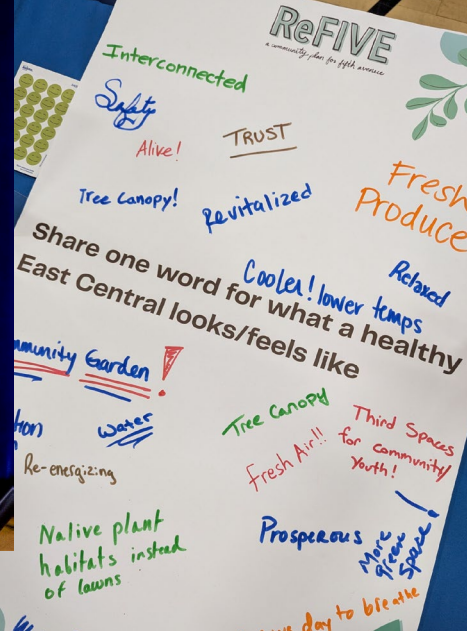 ReFIVE
a community plan for fifth avenue
Interconnected
Safety
Alive!
TRUST
Tree Canopy!
Revitalized
Fresh
Produce
Share one word for what a healthy
East Central looks/feels like
Cooler! lower temps
Relaxed
Garden!
Water
Re-energizing
Tree Canopy
Fresh Air!!
Third Spaces
for community/
Youth!
Native plant
habitats instead
of lawns
Prosperous
More
green
space!
day to breathe